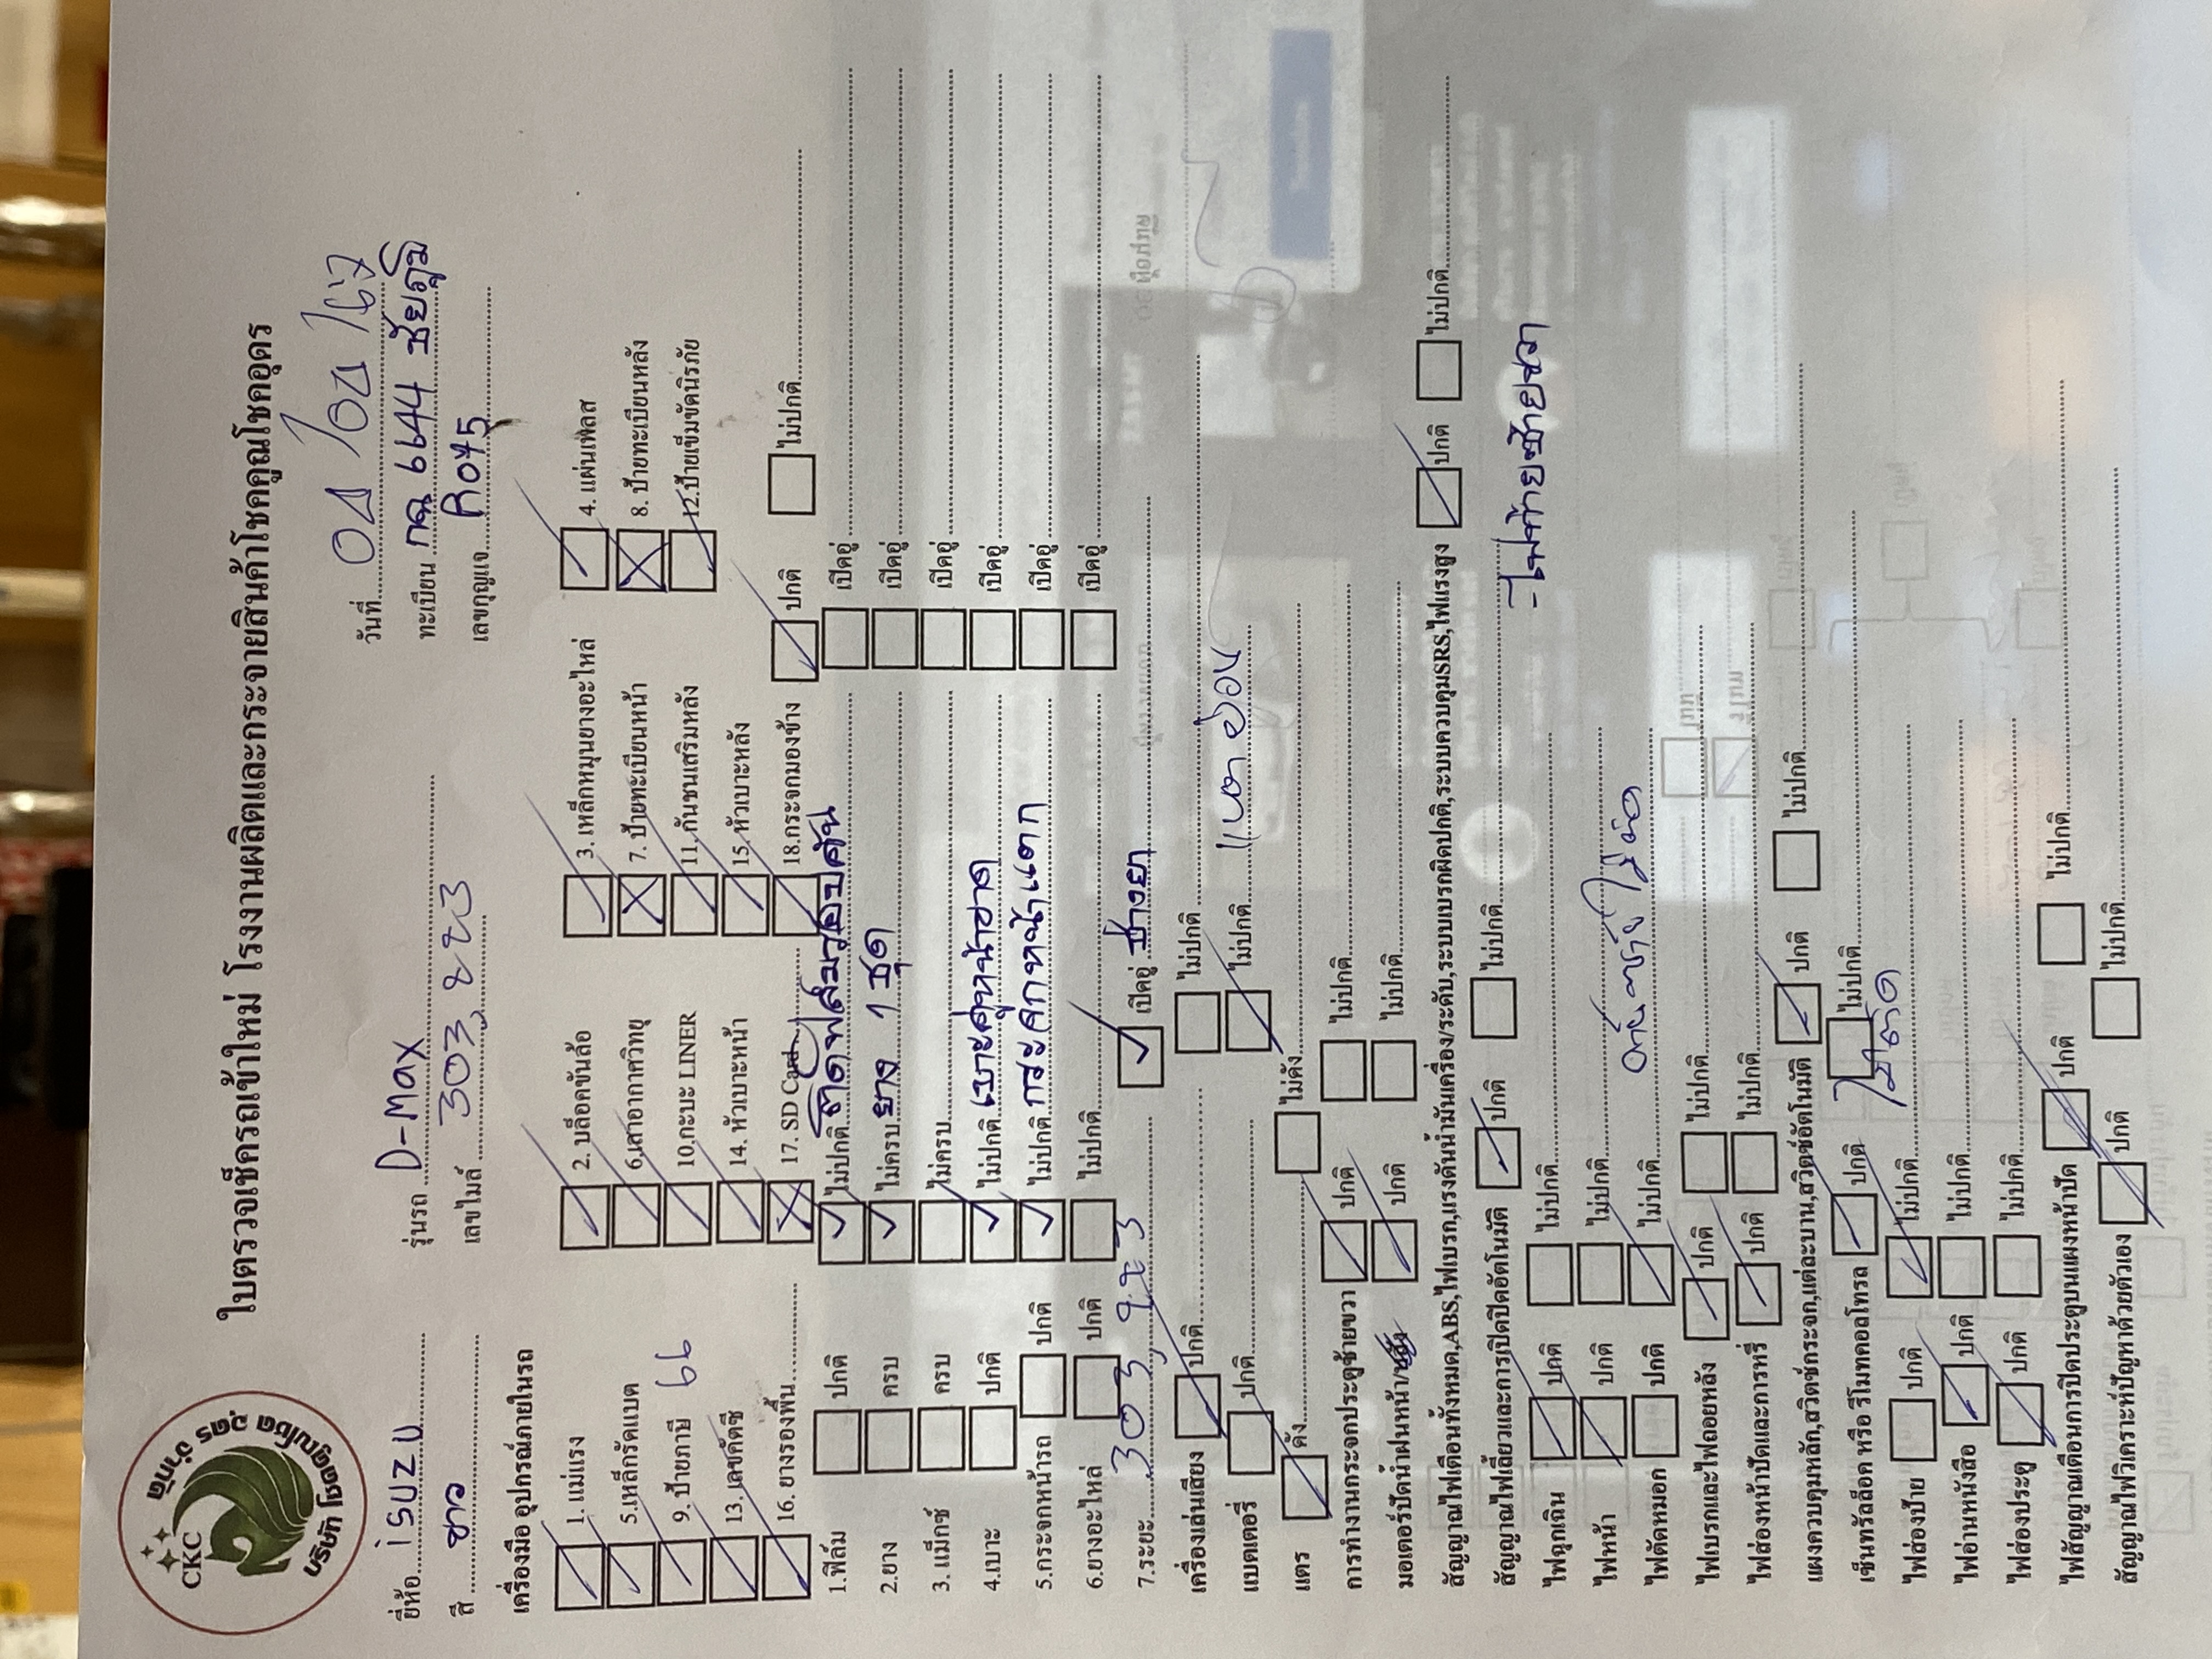 CKC
บริษัท โชคคูณโชค อุดร จำกัด
ใบตรวจเช็ครถเข้าใหม่ โรงงานผลิตและกระจายสินค้าโชคคูณโชคอุดร
วันที่ 04 /04 /67
ยี่ห้อ iSUZU รุ่นรถ D-Max ทะเบียน 6644 ชัยภูมิ
สี ขาว เลขไมล์ 303,223 เลขกุญแจ R045
เครื่องมือ อุปกรณ์ภายในรถ
1. แม่แรง 2. บล็อคขันล้อ 3. เหล็กหมุนยางอะไหล่ 4. แผ่นเพลส
5.เหล็กรัดแบต 6.เสาอากาศวิทยุ 7. ป้ายทะเบียนหน้า 8. ป้ายทะเบียนหลัง
9. ป้ายภาษี 66 10.กะบะ LINER 11.กันชนเสริมหลัง 12.ป้ายเข็มขัดนิรภัย
13. เลขคัตซี 14. หัวเบาะหน้า 15.หัวเบาะหลัง
16. ยางรองพื้น 17. SD Card 18.กระจกมองข้าง ปกติ ไม่ปกติ
1.ฟิล์ม ปกติ ไม่ปกติ เปิดอู่
2.ยาง ครบ ไม่ครบ ยาง 1 ชุด เปิดอู่
3. แม็กซ์ ครบ ไม่ครบ เปิดอู่
4.เบาะ ปกติ ไม่ปกติ เบาะคู่หน้าขาด เปิดอู่
5.กระจกหน้ารถ ปกติ ไม่ปกติ กระจกหน้าแตก เปิดอู่
6.ยางอะไหล่ ปกติ ไม่ปกติ เปิดอู่
7.ระยะ 303,223 เปิดอู่ ช่างยา
เครื่องเล่นเสียง ปกติ ไม่ปกติ
แบตเตอรี่ ปกติ ไม่ปกติ แบตอ่อน
แตร ดัง ไม่ดัง
การทำงานกระจกประตูซ้ายขวา ปกติ ไม่ปกติ
มอเตอร์ปัดน้ำฝนหน้า ปกติ ไม่ปกติ
สัญญาณไฟเตือนทั้งหมด,ABS,ไฟเบรก,แรงดันน้ำมันเครื่อง/ระดับ,ระบบเบรกผิดปกติ,ระบบควบคุมSRS,ไฟแรงสูง ปกติ ไม่ปกติ
สัญญาณไฟเลี้ยวและการเปิดปิดอัตโนมัติ ปกติ ไม่ปกติ
ไฟฉุกเฉิน ปกติ ไม่ปกติ - ไฟท้ายซ้ายขวา
ไฟหน้า ปกติ ไม่ปกติ
ไฟตัดหมอก ปกติ ไม่ปกติ
ไฟเบรกและไฟถอยหลัง ปกติ ไม่ปกติ
ไฟส่องหน้าปัดและการหรี่ ปกติ ไม่ปกติ
แผงควบคุมหลัก,สวิตช์กระจก,แต่ละบาน,สวิตซ์อัตโนมัติ ปกติ ไม่ปกติ
เซ็นทรัลล็อค หรือ รีโมทคอลโทรล ปกติ ไม่ปกติ
ไฟส่องป้าย ปกติ ไม่ปกติ ไม่ติด
ไฟอ่านหนังสือ ปกติ ไม่ปกติ
ไฟส่องประตู ปกติ ไม่ปกติ
ไฟสัญญาณเตือนการปิดประตูบนแผงหน้าปัด ปกติ ไม่ปกติ
สัญญาณไฟวิเคราะห์ปัญหาด้วยตัวเอง ปกติ ไม่ปกติ